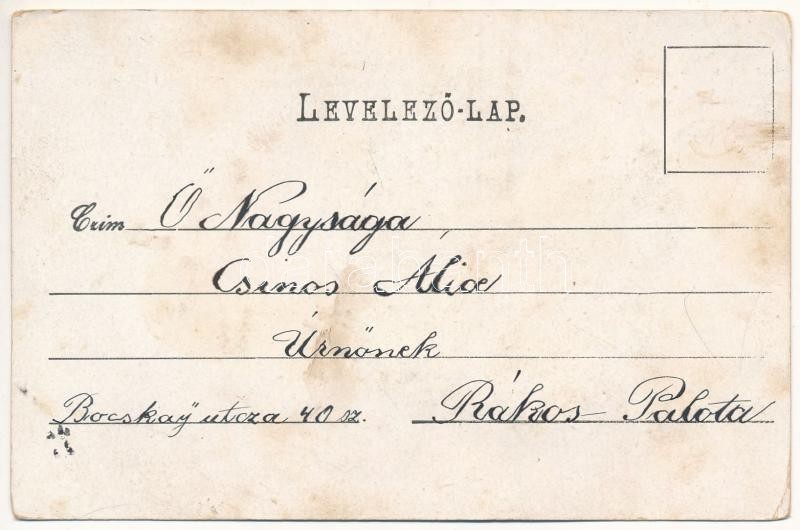 LEVELEZŐ-LAP.
Czim Ő Nagysága
Csinos Alice
Úrnőnek
Bocskaÿ utcza 40 sz. Rákos Palota